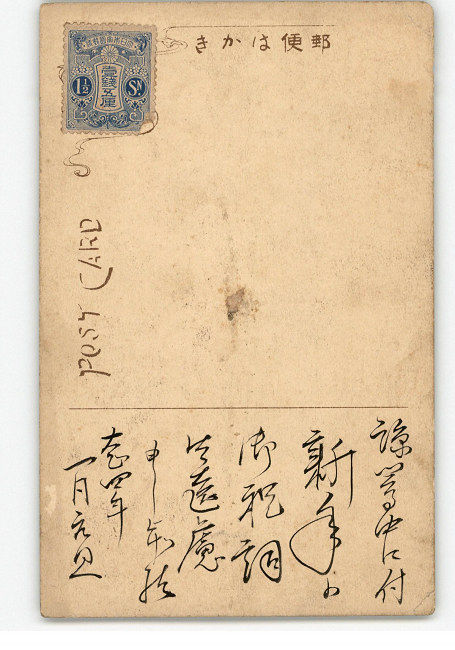 郵便はかき
壹錢五厘
1½
SN
POST CARD
諒闇中に付
新年の
御祝詞
御遠慮
申
大正四年
一月元旦